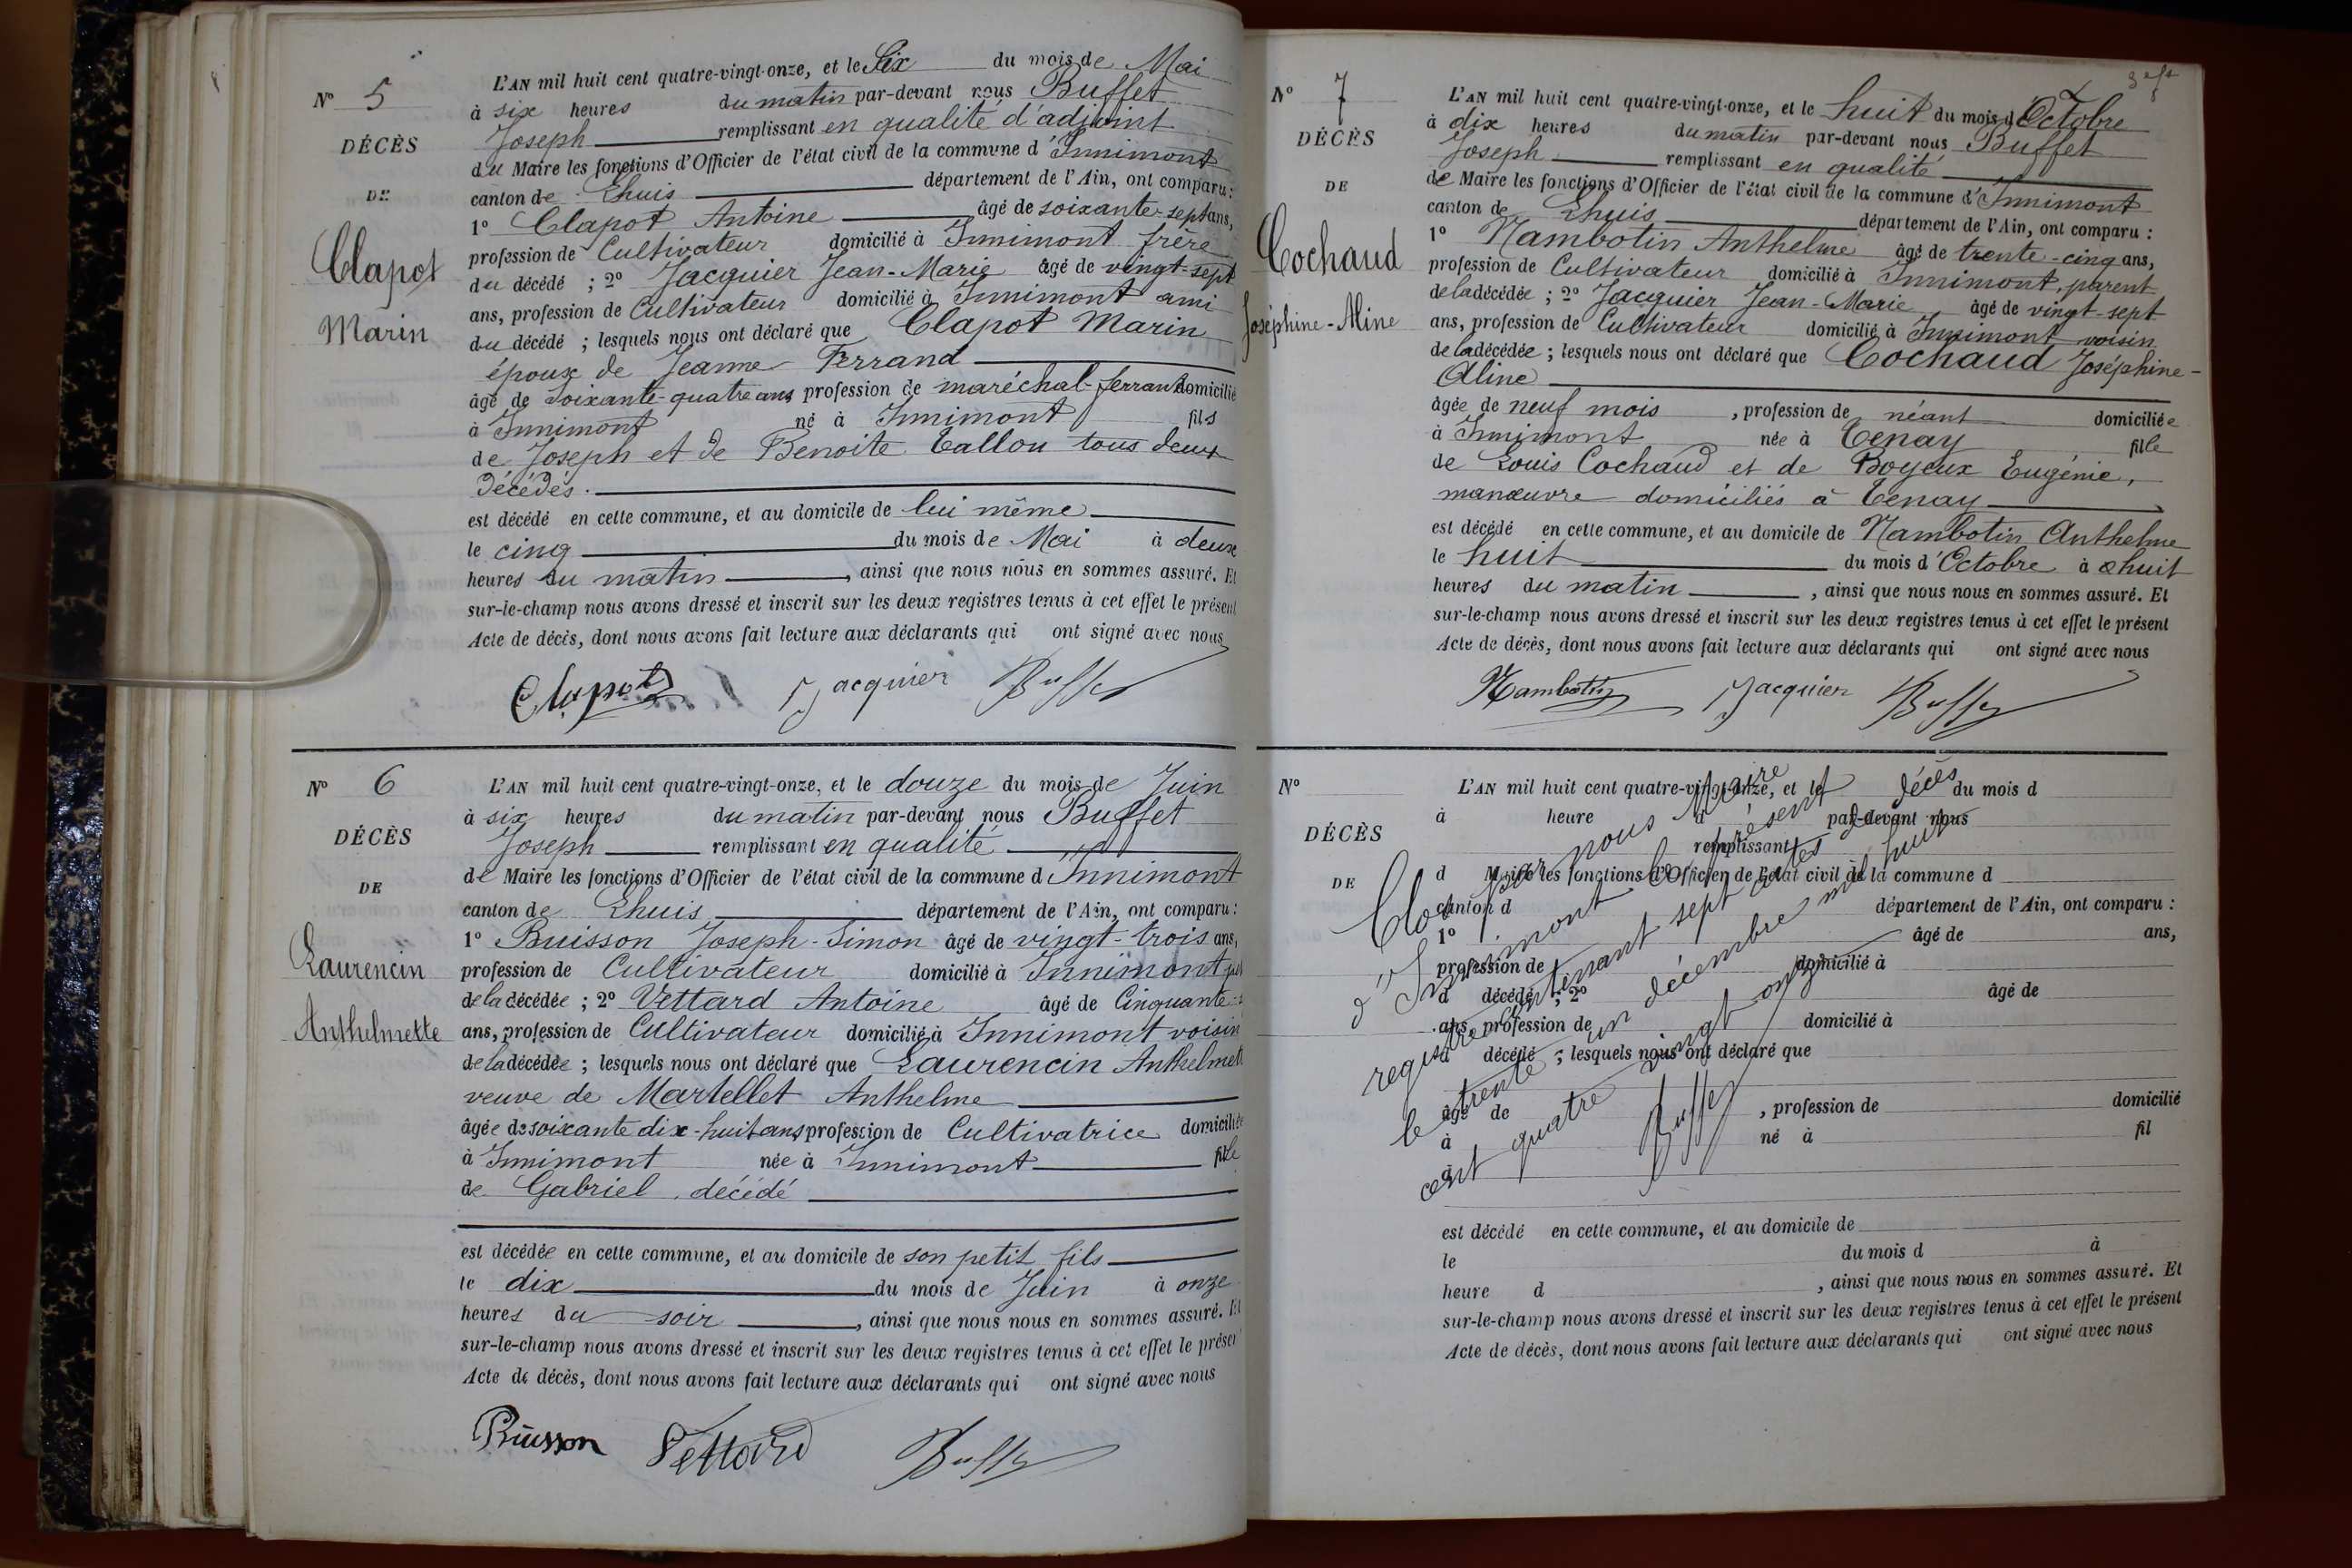 N° 5
DÉCÈS
DE
Clapot
Marin
L'AN mil huit cent quatre-vingt-onze, et le Six du mois de Mai
à six heures du matin par-devant nous Buffet
Joseph remplissant en qualité d'adjoint
du Maire les fonctions d'Officier de l'état civil de la commune d'Innimont
canton de Lhuis département de l'Ain, ont comparu :
1° Clapot Antoine âgé de soixante-sept ans,
profession de Cultivateur domicilié à Innimont frère
du décédé ; 2° Jacquier Jean-Marie âgé de vingt-sept
ans, profession de Cultivateur domicilié à Innimont ami
du décédé ; lesquels nous ont déclaré que Clapot Marin
époux de Jeanne Ferrand
âgé de soixante-quatre ans profession de maréchal-ferrant domicilié
à Innimont né à Innimont fils
de Joseph et de Benoite Tallon tous deux
décédés.
est décédé en cette commune, et au domicile de lui même
le cinq du mois de Mai à deux
heures du matin, ainsi que nous nous en sommes assuré. Et
sur-le-champ nous avons dressé et inscrit sur les deux registres tenus à cet effet le présent
Acte de décès, dont nous avons fait lecture aux déclarants qui ont signé avec nous
Clapot Jacquier Buffet
N° 6
DÉCÈS
DE
Laurencin
Anthelmette
L'AN mil huit cent quatre-vingt-onze, et le douze du mois de Juin
à six heures du matin par-devant nous Buffet
Joseph remplissant en qualité
de Maire les fonctions d'Officier de l'état civil de la commune d'Innimont
canton de Lhuis département de l'Ain, ont comparu :
1° Buisson Joseph-Simon âgé de vingt-trois ans,
profession de Cultivateur domicilié à Innimont
de la décédée ; 2° Vettard Antoine âgé de Cinquante-
ans, profession de Cultivateur domicilié à Innimont voisin
de la décédée ; lesquels nous ont déclaré que Laurencin Anthelmett
veuve de Martellet Anthelme
âgée de soixante dix-huit ans profession de Cultivatrice domiciliée
à Innimont née à Innimont fille
de Gabriel, décédé
est décédée en cette commune, et au domicile de son petit fils
le dix du mois de Juin à onze
heures du soir, ainsi que nous nous en sommes assuré. Et
sur-le-champ nous avons dressé et inscrit sur les deux registres tenus à cet effet le présen
Acte de décès, dont nous avons fait lecture aux déclarants qui ont signé avec nous
Buisson Vettard Buffet
N° 7
DÉCÈS
DE
Cochaud
Joséphine-Aline
L'AN mil huit cent quatre-vingt-onze, et le huit du mois d'Octobre
à dix heures du matin par-devant nous Buffet
Joseph remplissant en qualité
de Maire les fonctions d'Officier de l'état civil de la commune d'Innimont
canton de Lhuis département de l'Ain, ont comparu :
1° Nambotin Anthelme âgé de trente-cinq ans,
profession de Cultivateur domicilié à Innimont, parent
de la décédée ; 2° Jacquier Jean-Marie âgé de vingt-sept
ans, profession de Cultivateur domicilié à Innimont voisin
de la décédée ; lesquels nous ont déclaré que Cochaud Joséphine-
Aline
âgée de neuf mois, profession de néant domiciliée
à Innimont née à Tenay fille
de Louis Cochaud et de Boyeux Eugénie,
manœuvre domiciliés à Tenay
est décédé en cette commune, et au domicile de Nambotin Anthelme
le huit du mois d'Octobre à huit
heures du matin, ainsi que nous nous en sommes assuré. Et
sur-le-champ nous avons dressé et inscrit sur les deux registres tenus à cet effet le présent
Acte de décès, dont nous avons fait lecture aux déclarants qui ont signé avec nous
Nambotin Jacquier Buffet
N°
DÉCÈS
DE
L'AN mil huit cent quatre-vingt-onze, et le du mois d
à heure d par-devant nous
remplissant
d Maire les fonctions d'Officier de l'état civil de la commune d
canton d département de l'Ain, ont comparu :
1° âgé de ans,
profession de domicilié à
d décédé ; 2° âgé de
ans, profession de domicilié à
d décédé ; lesquels nous ont déclaré que
âgé de , profession de domicilié
à né à fil
de
est décédé en cette commune, et au domicile de
le du mois d à
heure d , ainsi que nous nous en sommes assuré. Et
sur-le-champ nous avons dressé et inscrit sur les deux registres tenus à cet effet le présent
Acte de décès, dont nous avons fait lecture aux déclarants qui ont signé avec nous
Clos par nous Maire
d'Innimont le présent
registre contenant sept actes de décès
le trente un décembre mil huit
cent quatre vingt onze
Buffet